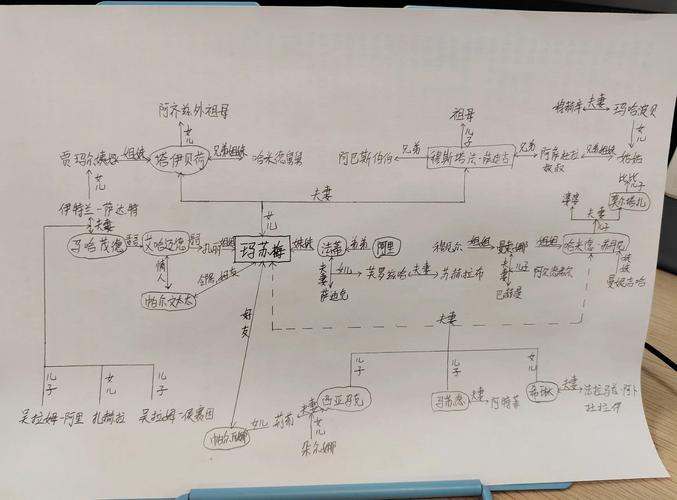 阿齐兹外祖母
祖母
穆赫辛 夫妻 玛哈波贝
女儿
儿子
女儿
贾玛尔姨母 姐妹 塔伊贝荷 兄弟姐妹 哈米德舅舅
阿巴斯伯伯 兄弟 穆斯塔法-萨达古 兄弟 阿萨杜拉叔叔 兄弟姐妹 姑姑
女儿
夫妻
比比
儿子
莫尔塔扎
伊特兰-萨达特
夫妻
女儿
夫妻
儿子
马哈茂德 艾哈迈德 姐姐 玛苏梅 妹妹 法蒂 弟弟 阿里
姐姐 曼素娜 姐姐 哈米德
情人
夫妻 女儿 芙罗兹哈 夫妻 苏赫拉布
夫妻 儿子
妹妹
萨迪克
曼妮吉哈
帕尔文太太
好友
夫妻
儿子 女儿 儿子
儿子 儿子 女儿
吴拉姆-阿里 扎赫拉 吴拉姆-侯赛因
西亚马克
马苏德 夫妻 阿特菲
希琳 夫妻 法拉马兹-阿卜杜拉伊
帕尔瓦娜 女儿 莉莉 夫妻
朵尔娜